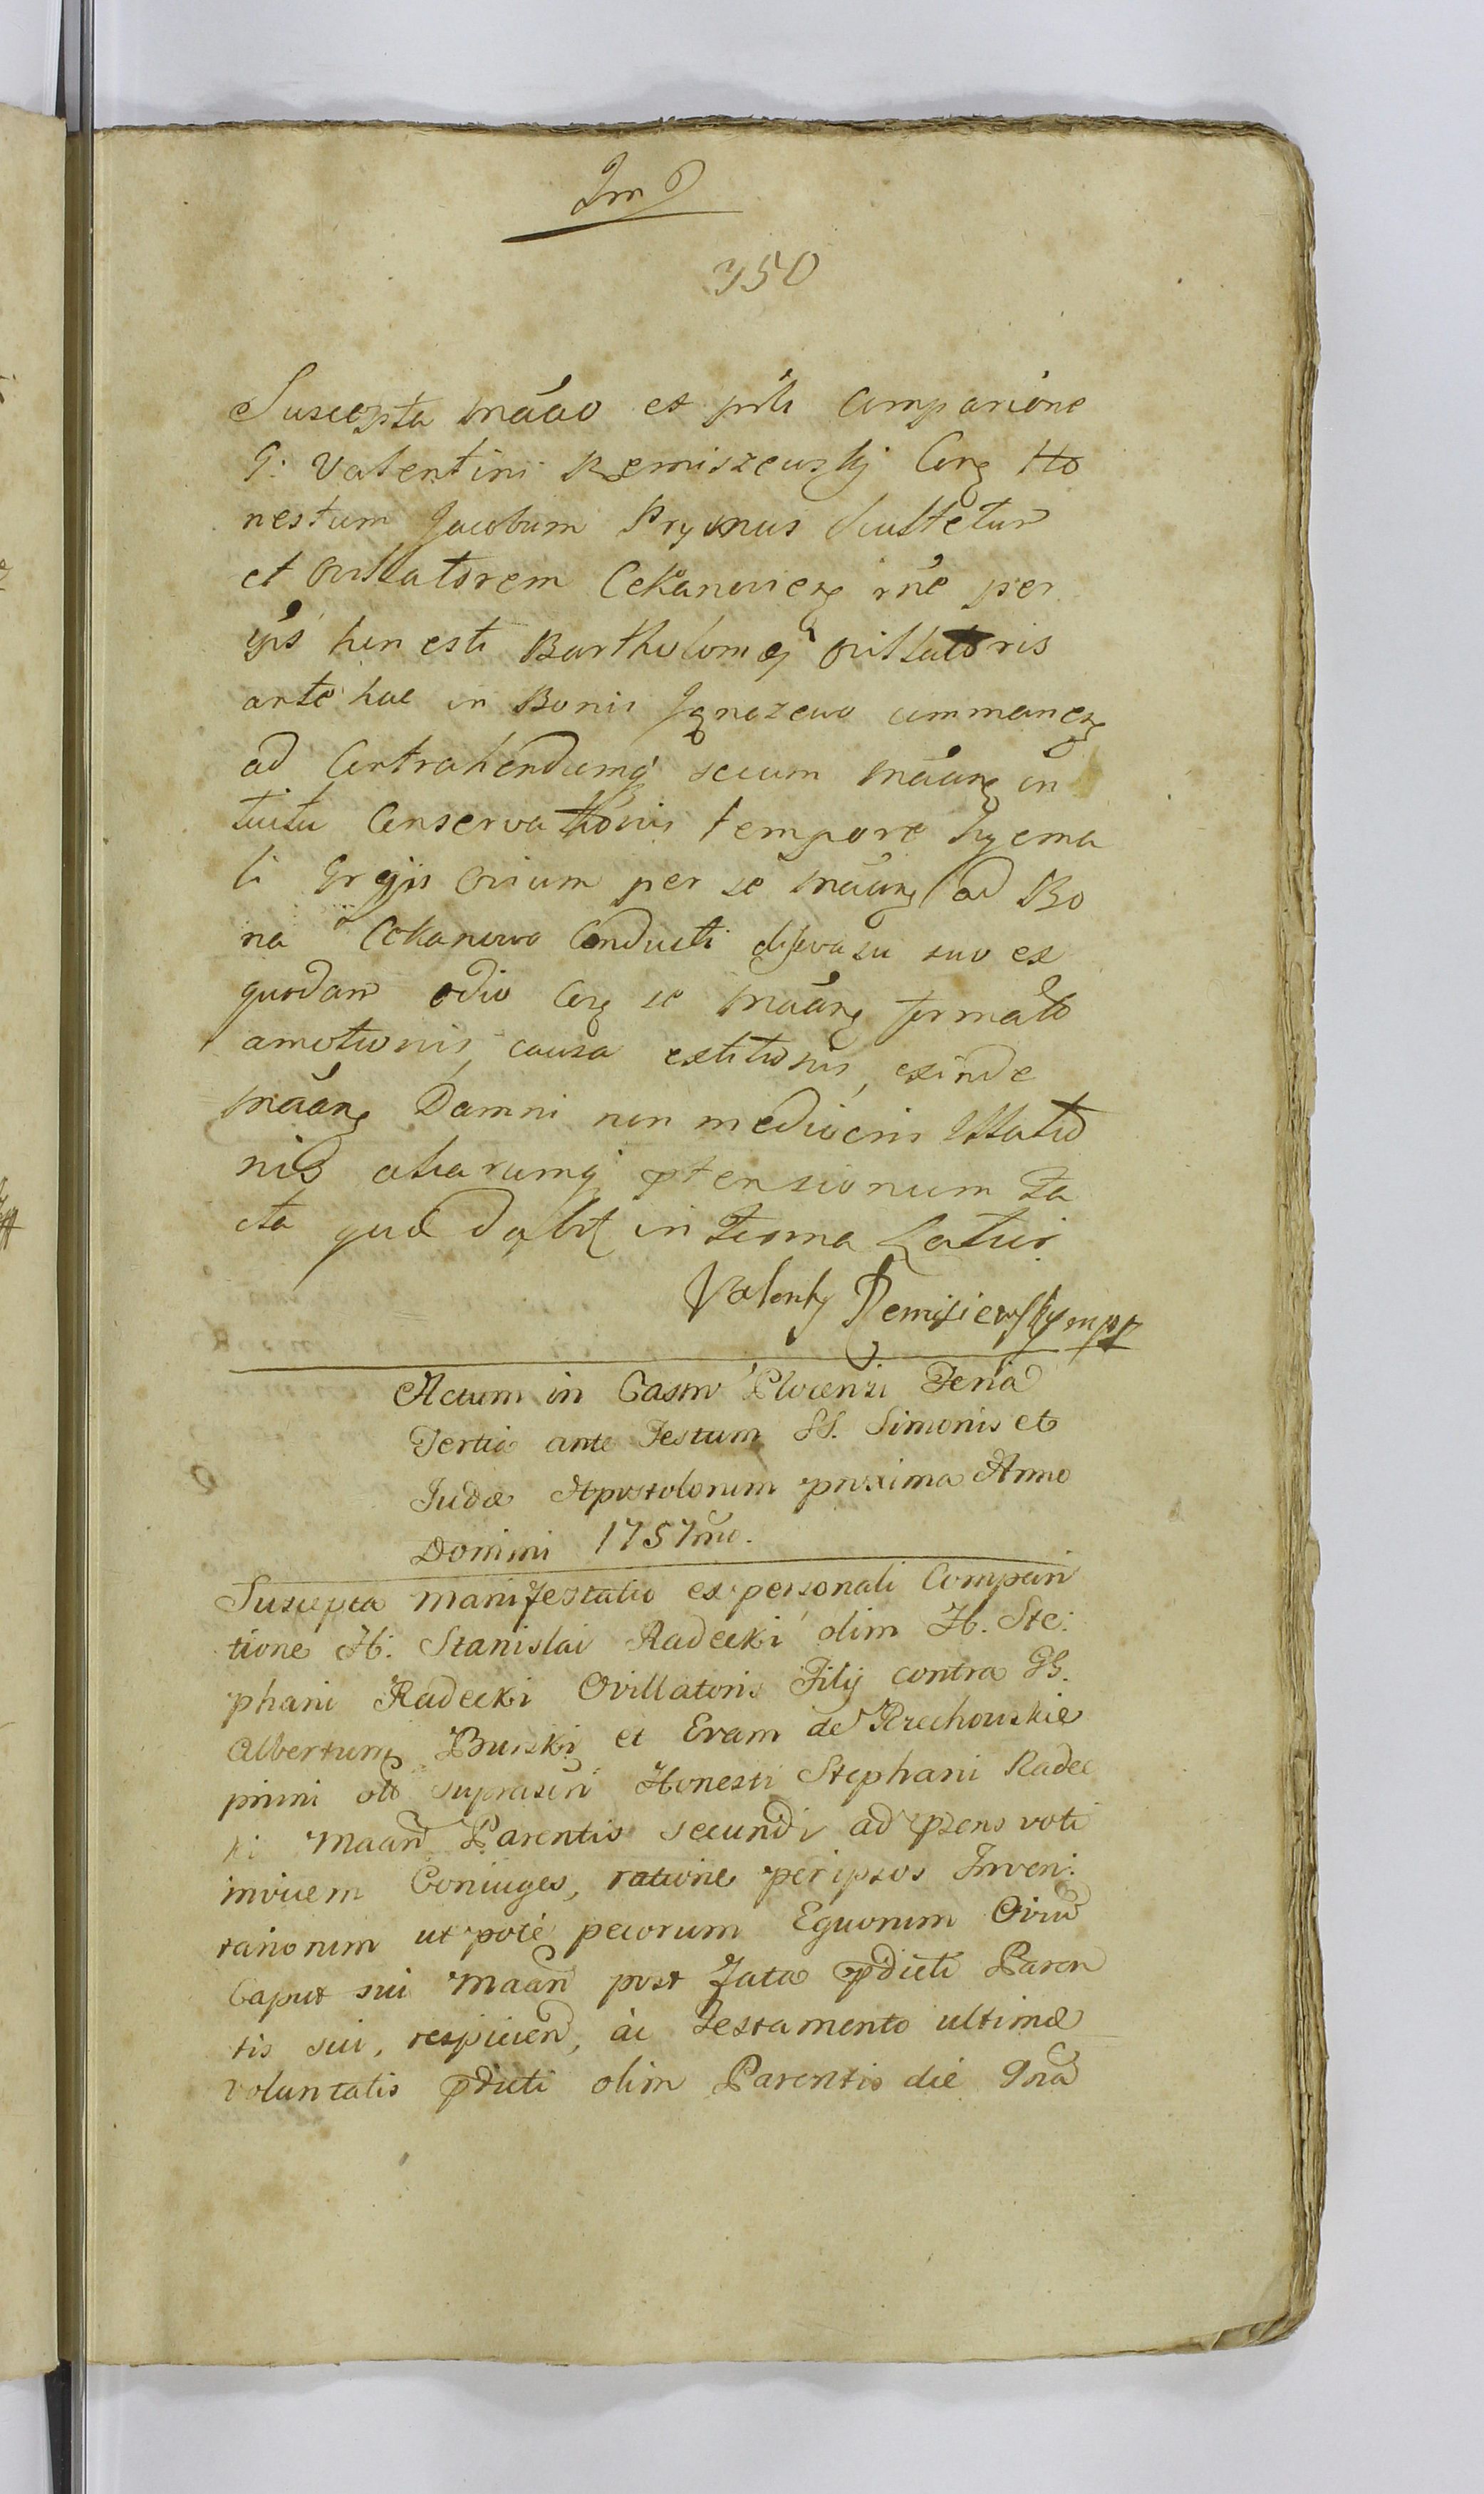 Im
350
Suscepta mããõ ex prsli comparione
G. Valentini Remiszewskj Cong Ho
nestum Jacobum Prymus Scultetum
et Ovillatorem Cekanovieng rne per
ips honesti Bartholomej ovillatoris
ante hac in Bonis Ignazewo commaneng
ad Contrahendumq secum mããng in
tuitu Conservationis tempore hyema
li Gregis ovium per se mããng ad Bo
na Cekanowo Conducti disvasu suo ex
quodam odio Cong se mããng formato
amotionis causa extitionis, exinde
mããng Damni non mediocris Illatio
nis aliarumq ptensionum fa
cta quæ dabit in Termo Latius
Valenty Remisiewsky mpp
Actum in Castro Plocensi Feria
Tertia ante Festum SS. Simonis et
Judæ Apostolorum proxima Anno
Domini 1757mo.
Suscepta Manifestatio ex personali Compari
tione H. Stanislai Radecki olim H. Ste:
phani Radecki Ovillatoris Filij contra GG.
Albertum Burski et Evam de Rzechowskie
primi olo suprascri Honesti Stephani Radec
ki Maan Parentis secundi ad pzens voti
invicem Coniuges, ratione per ipsos Inven:
tariorum ut pote pecorum Equorum Oviu
Caput sui Maan post fata pdicti Paren
tis sui, respicien, ac Testamento ultimæ
voluntatis pdicti olim Parentis die 9na